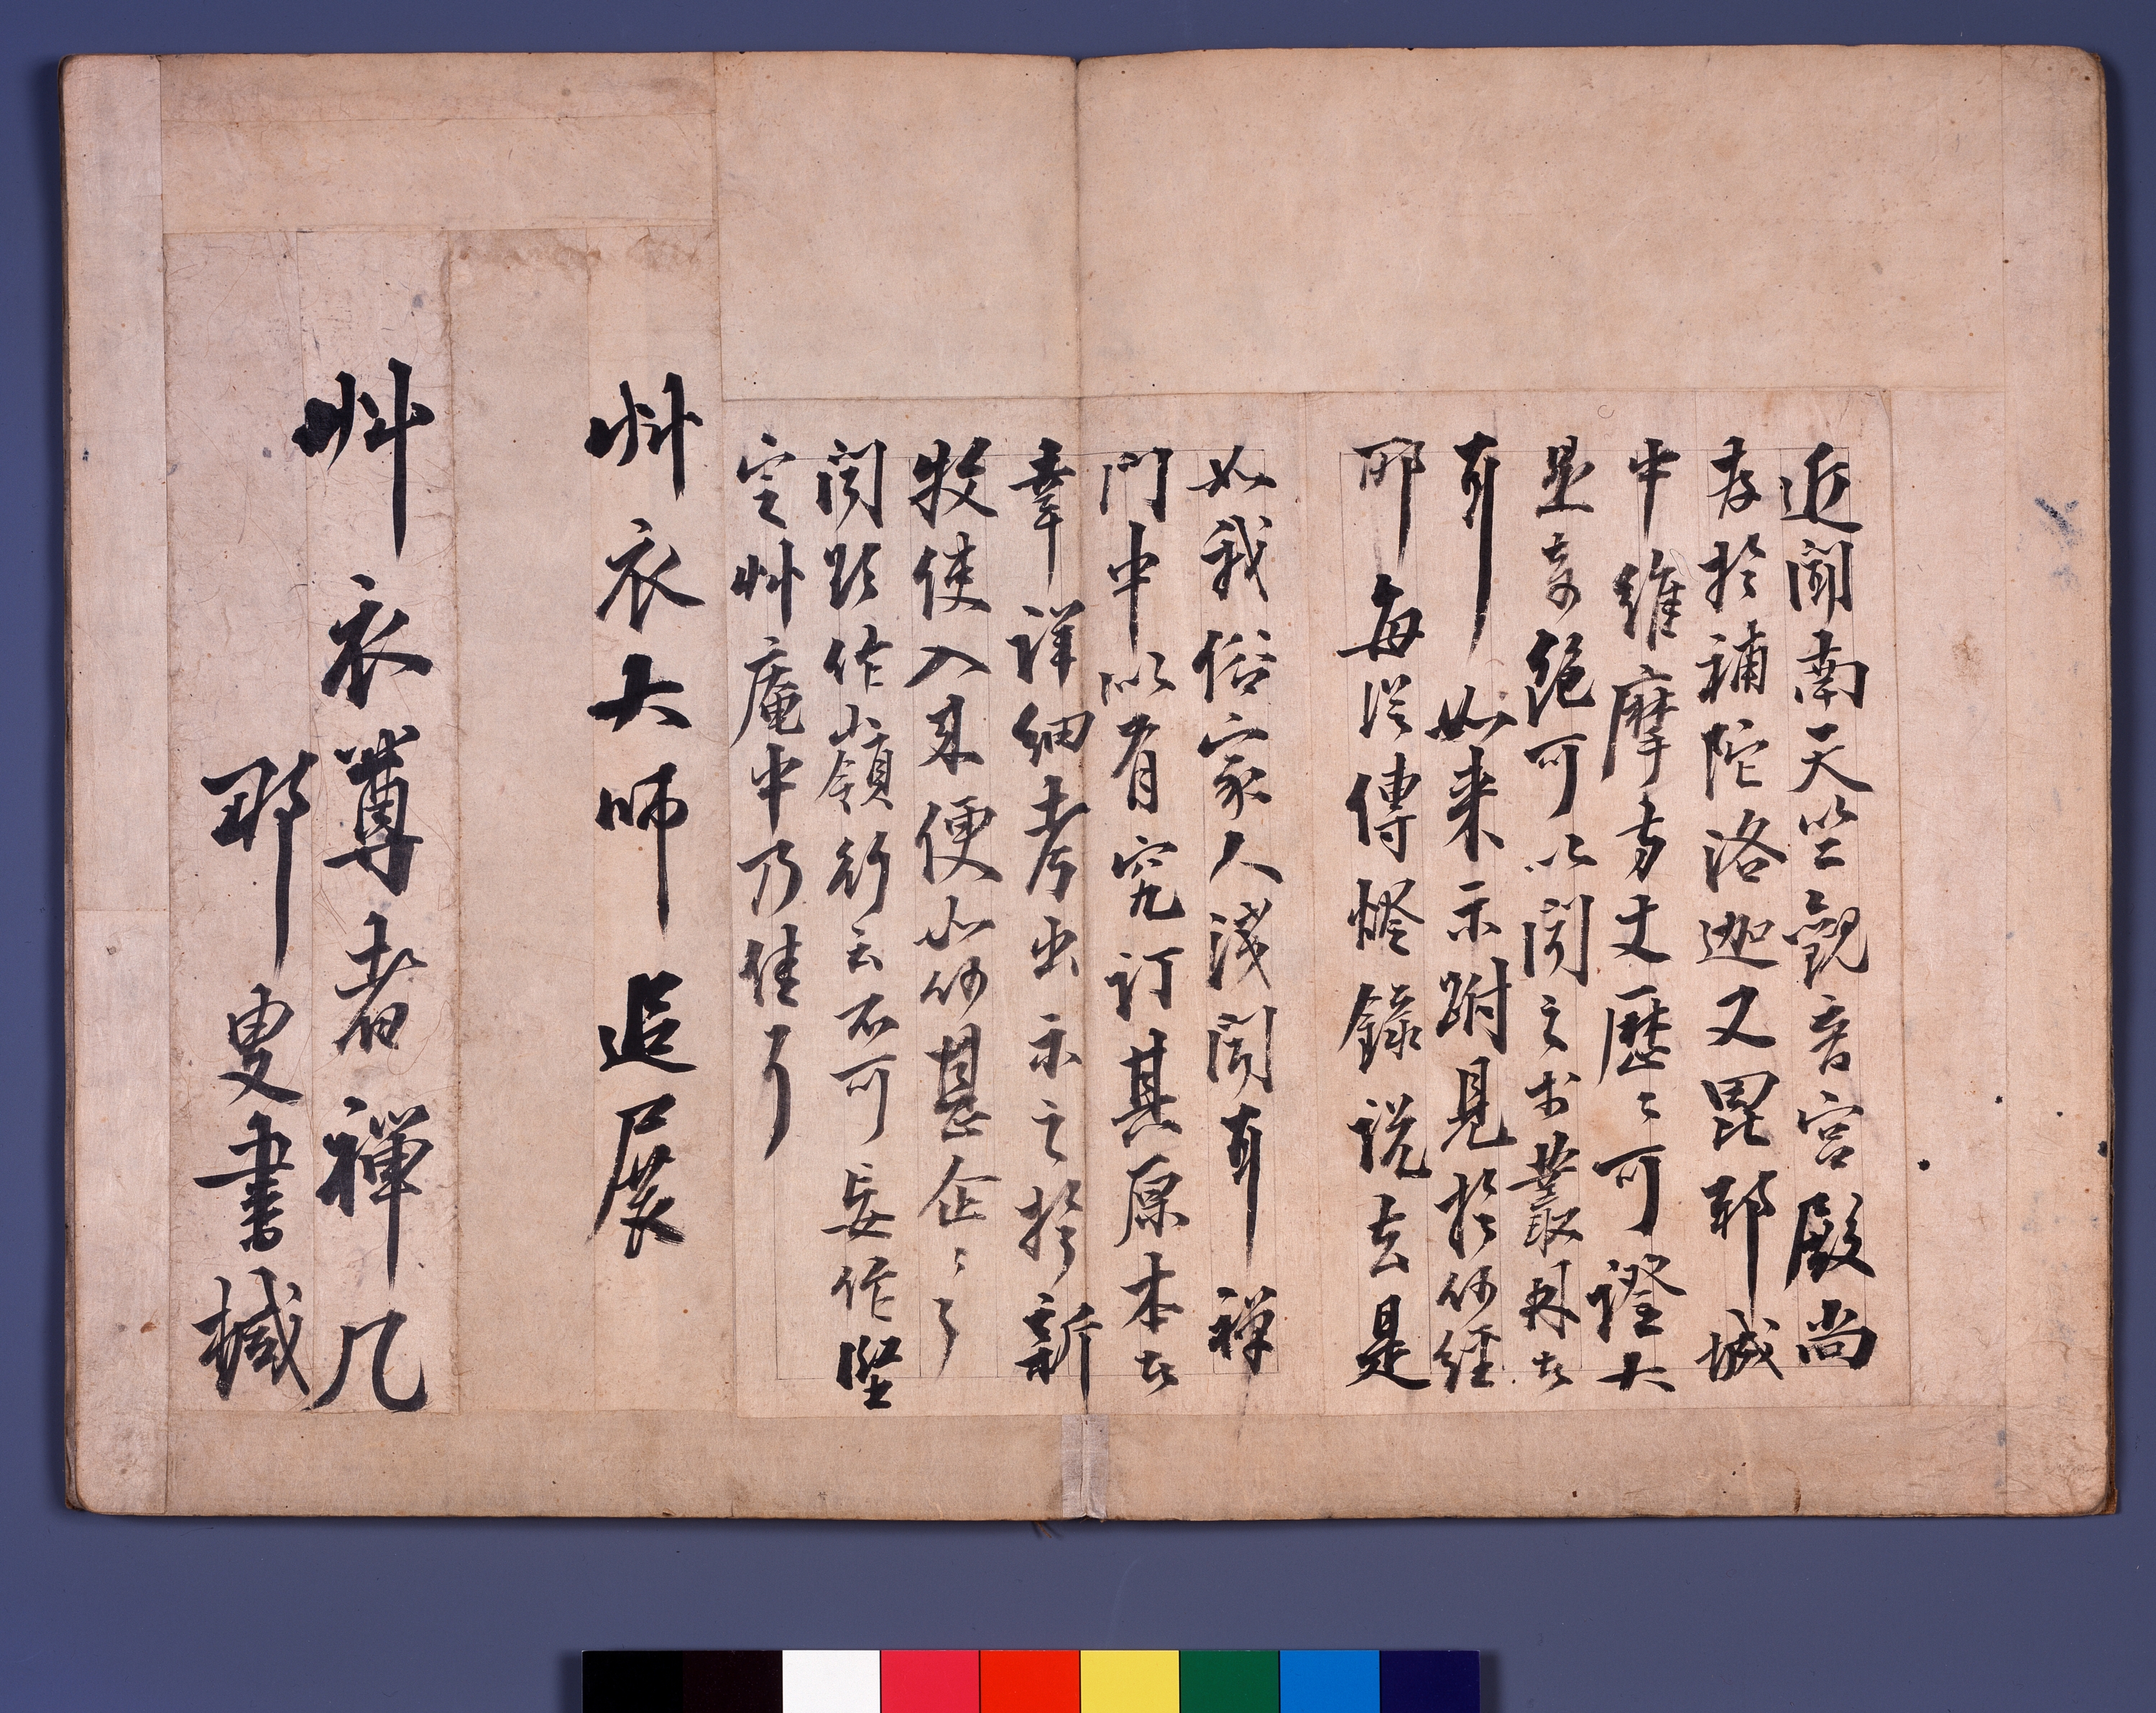 近聞南天竺觀音宮殿尚
存於補陀洛迦又毘耶城
中維摩方丈歷〻可證大
是奇絕可以聞之于叢林者
耶 如來示跗見於何經
耶每從傳燈錄說去是
如我俗家人淺聞耶禪
門中以有究訂其原本者
幸詳細考出示之於新
牧使入來便如何甚企〻〻
聞路作嶺行云不可妄作
定艸庵中乃佳耳
艸衣大師 追展
艸衣尊者禪几
那叟書椷